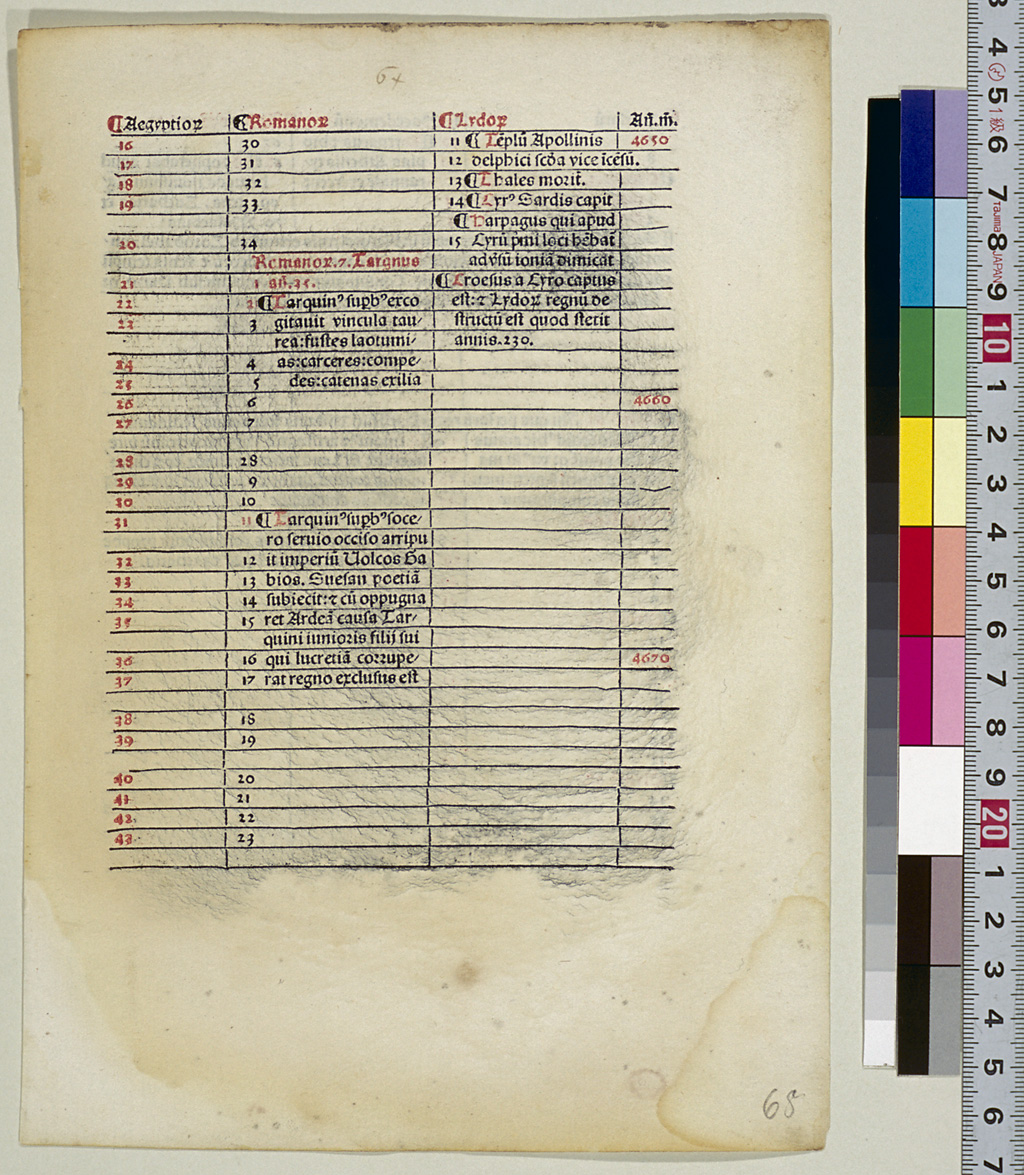 6x
¶Aegyptioꝝ ¶Romanoꝝ ¶Lydoꝝ Añ.m̃.
16 30 11 ¶ Tēplū Apollinis 4650
17 31 12 delphici scða vice icēsū.
18 32 13 ¶Thales morit̃.
19 33 14 ¶Cyrꝰ Sardis capit
¶Harpagus qui apud
20 34 15 Cyrū pmi loci hēbat̃
Romanoꝝ.7.Tarqnus adv̄sū ioniā dimicat
21 1 añ.35. ¶Croesus a Cyro captus
22 2 ¶Tarquinꝰ supbꝰ exco est:⁊ Lydoꝝ regnū de
23 3 gitauit vincula tau/ structū est quod stetit
rea:fustes laotumi/ annis.230.
24 4 as:carceres:compe/
25 5 des:catenas exilia
26 6 4660
27 7
28 28
29 9
30 10
31 11 ¶Tarquinꝰsupbꝰsoce/
ro seruio occiso arripu
32 12 it imperiū Uolcos Ga
33 13 bios. Suesan poetiā
34 14 subiecit:⁊ cū oppugna
35 15 ret Ardeā causa Tar/
quini iunioris filij sui
36 16 qui lucretiā corrupe/ 4670
37 17 rat regno exclusus est
38 18
39 19
40 20
41 21
42 22
43 23
68
3 4 5 6 7 8 9 10 1 2 3 4 5 6 7 8 9 20 1 2 3 4 5 6 7
1級 Tajima JAPAN